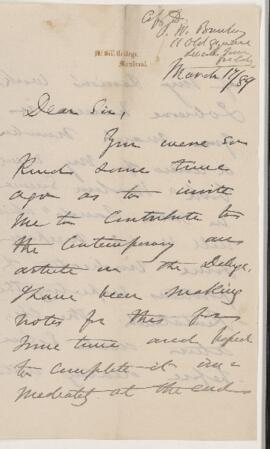 P. W. Bunting
11 Old Square
Lincoln's Inn
McGill College,
Montreal.
March 17/89
Dear Sir,
You were so
kind some time
ago as to invite
me to contribute to
the Contemporary an
article on the Deluge.
I have been making
notes for this for
some time and hoped
to complete it im-
mediately at the end